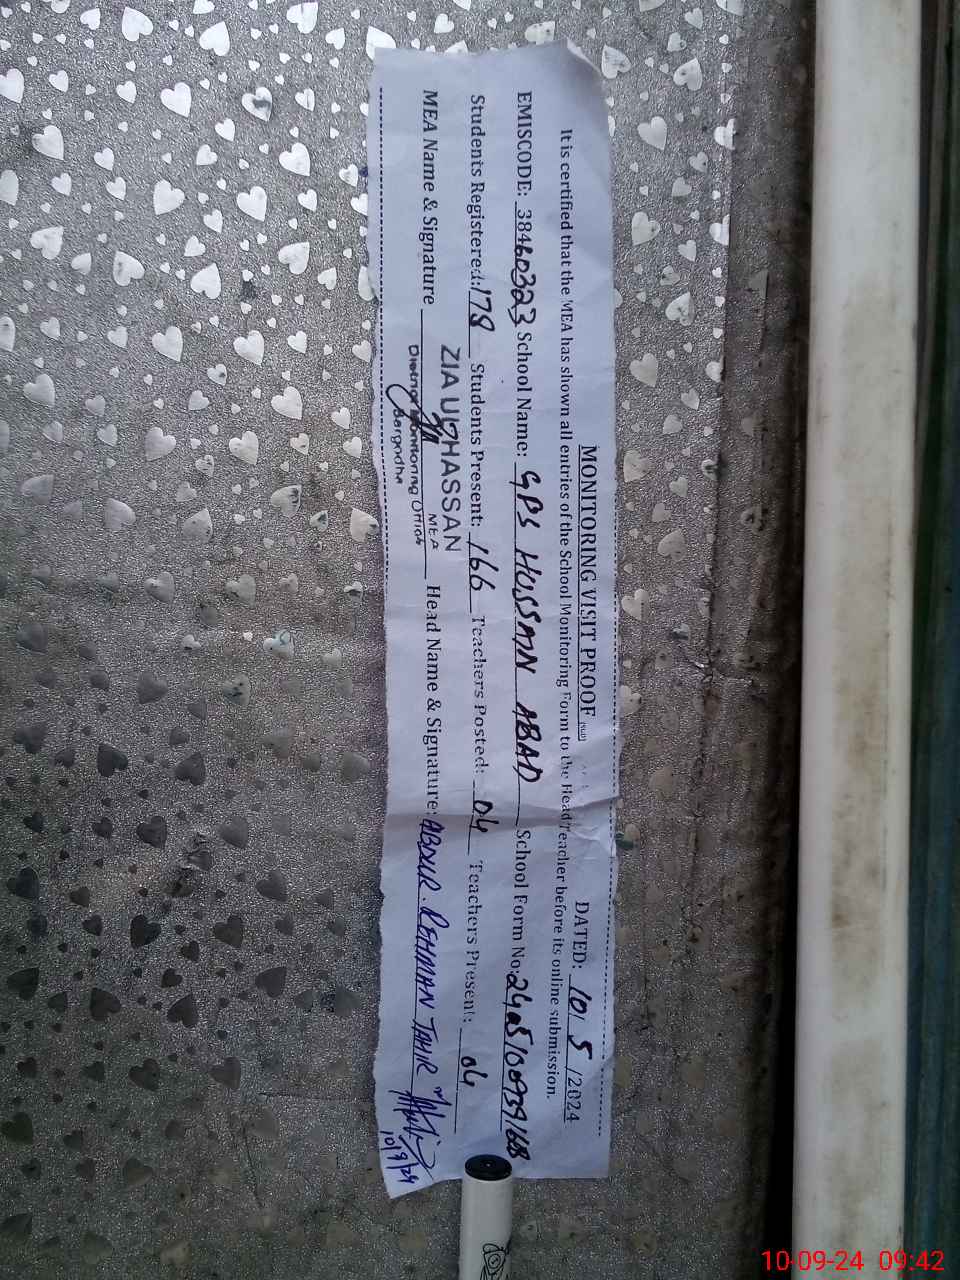 MONITORING VISIT PROOF
DATED: 10/ 5 /2024
It is certified that the MEA has shown all entries of the School Monitoring Form to the Head Teacher before its online submission.
EMISCODE: 38460323 School Name: GPS HUSSAN ABAD School Form No:
Students Registered: 178 Students Present: 166 Teachers Posted: 04 Teachers Present: 04
MEA Name & Signature Head Name & Signature: ABDUR. REHMAN TAHIR
ZIA UL HASSAN
MEA
District Monitoring Officer
Sargodha
10/9/24
10-09-24 09:42